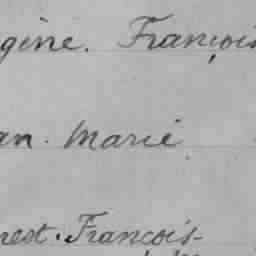 gène. François
an. Marie
nest. François-